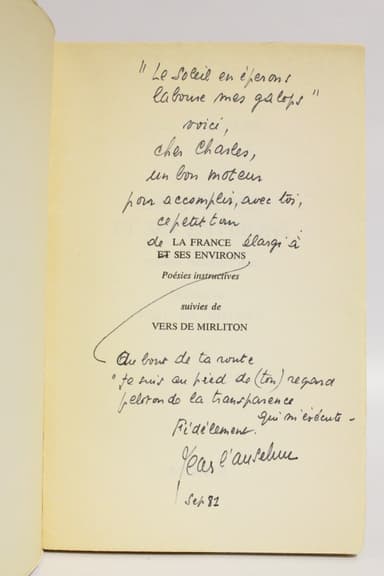 "Le soleil en éperons
laboure mes galops"
voici,
cher Charles,
un bon moteur
pour accomplir, avec toi,
ce petit tour
de LA FRANCE élargi à
ET SES ENVIRONS
Poésies instructives
suivies de
VERS DE MIRLITON
Au bout de ta route
"Je suis au pied de (ton) regard
peloton de la transparence
qui m'exécute -
Fidèlement.
Jean l'anselme
Sep 82